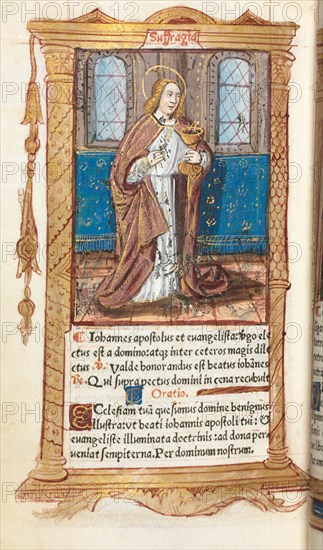 Suffragia
C Iohannes apostolus et euangelista: virgo ele
ctus est a domino: atq; inter ceteros magis dil
ectus ℣. Valde honorandus est beatus iohānes
℟. Qui supra pectus domini in cena recubuit
Oratio.
Ecclesiam tuā quesumus domine benignus
illustra: vt beati iohannis apostoli tui: &
euangeliste illuminata doctrinis: ad dona per
ueniat sempiterna. Per dominum nostrum.